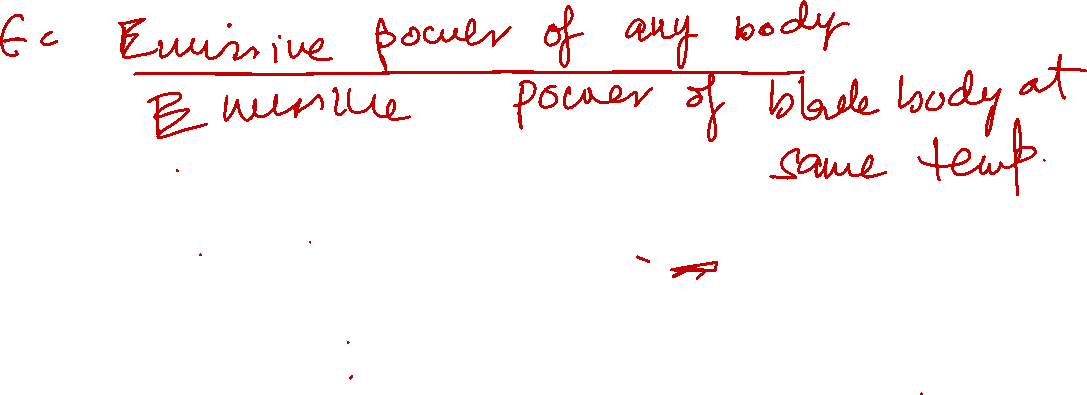 ϵ = Emissive power of any body
Emissive power of black body at
same temp.